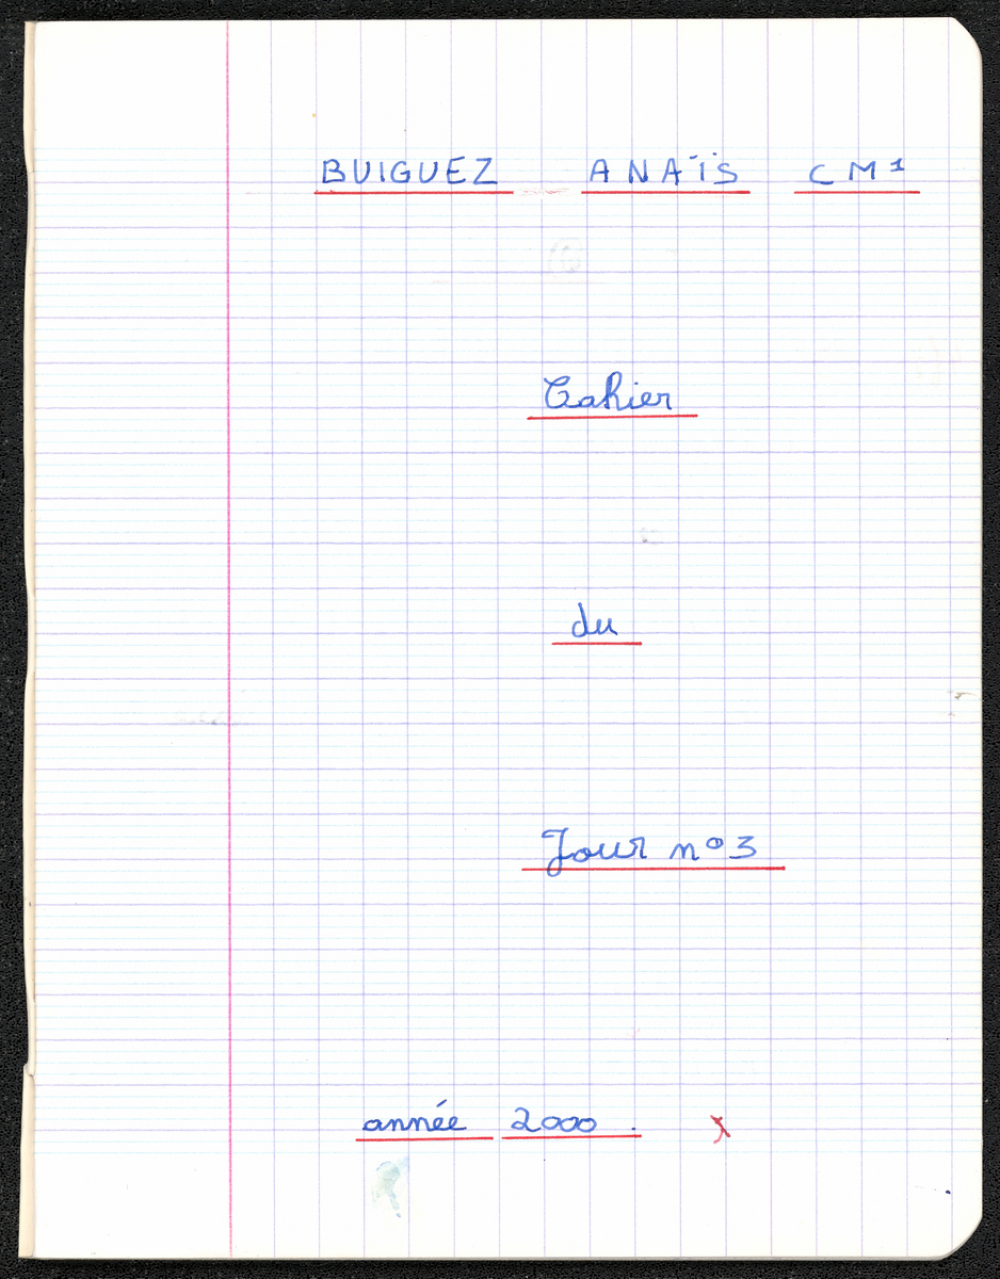 BUIGUEZ ANAÏS CM1
Cahier
du
Jour n°3
année 2000.